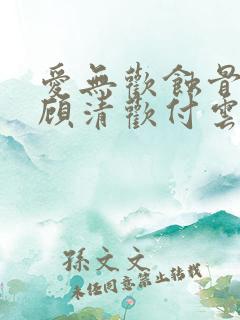 愛無歡蝕骨
顧清歡付雲
孫文文
未经同意禁止转载